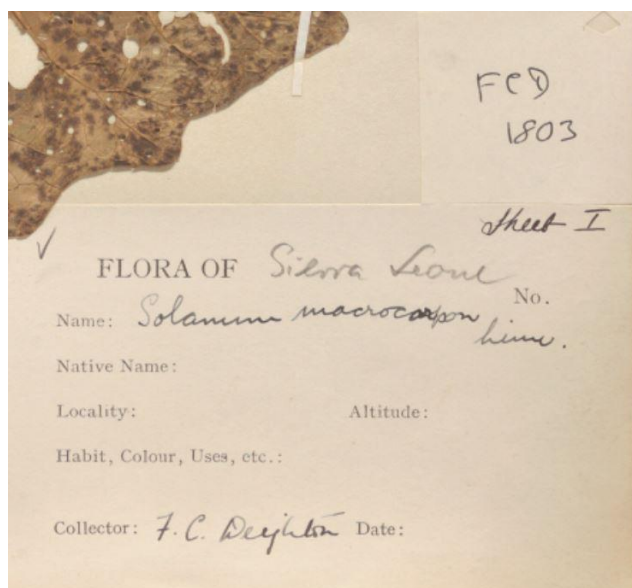 FCD
1803
Sheet I
FLORA OF Sierra Leone
No.
Name: Solanum macrocarpon
Linn.
Native Name:
Locality: Altitude:
Habit, Colour, Uses, etc.:
Collector: F. C. Deighton Date: